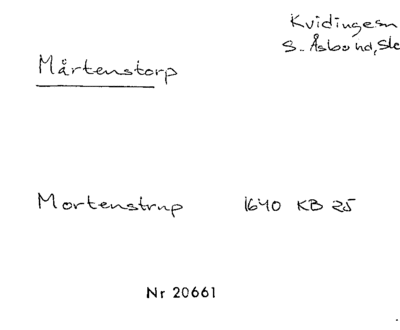 Kvidinge sn
S. Åsbo hd, Sk
Mårtenstorp
Mortenstrup 1640 KB 25
Nr 20661